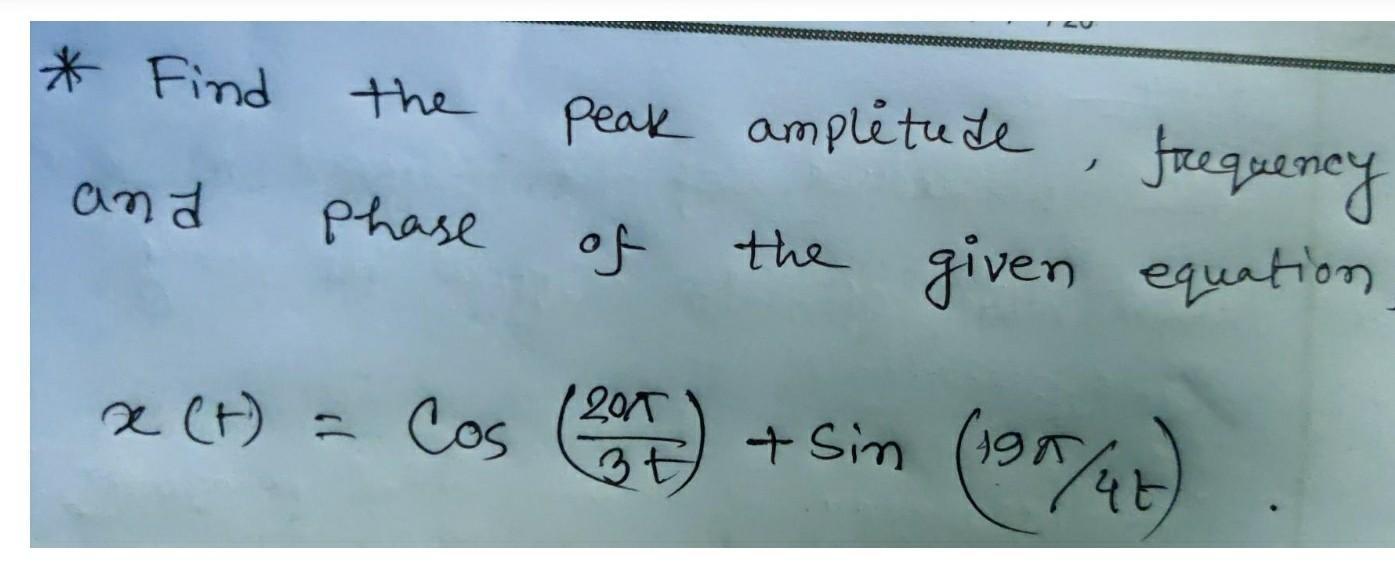 * Find the peak amplitude, frequency
and phase of the given equation
x(t) = Cos (20π/3t) + Sin (19π/4t).